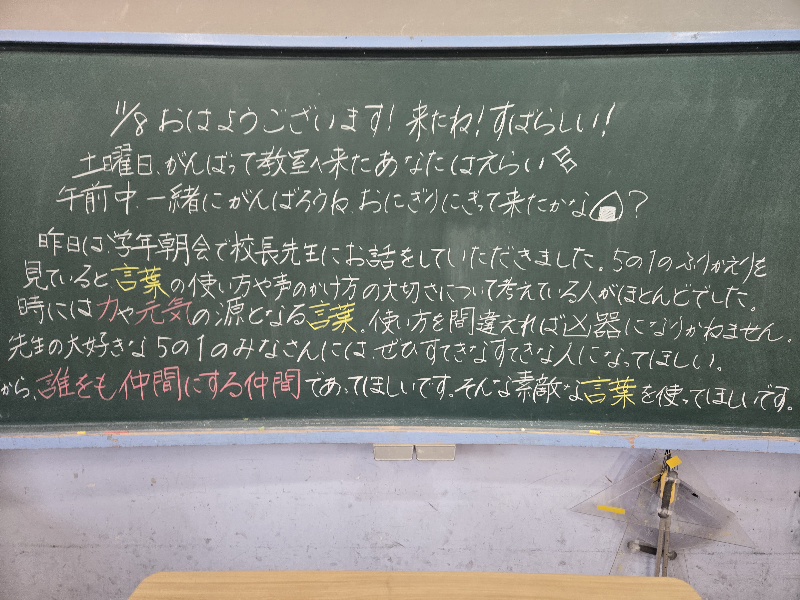 11/8 おはようございます! 来たね! すばらしい!
土曜日、がんばって教室へ来たあなたはえらい
午前中、一緒にがんばろうね。おにぎりにぎって来たかな?
昨日は、学年朝会で校長先生にお話をしていただきました。5の1のふりかえりを
見ていると言葉の使い方や声のかけ方の大切さについて考えている人がほとんどでした。
時には力や元気の源となる言葉。使い方を間違えれば凶器になりかねません。
先生の大好きな5の1のみなさんには、ぜひすてきなすてきな人になってほしい。
から、誰をも仲間にする仲間であってほしいです。そんな素敵な言葉を使ってほしいです。